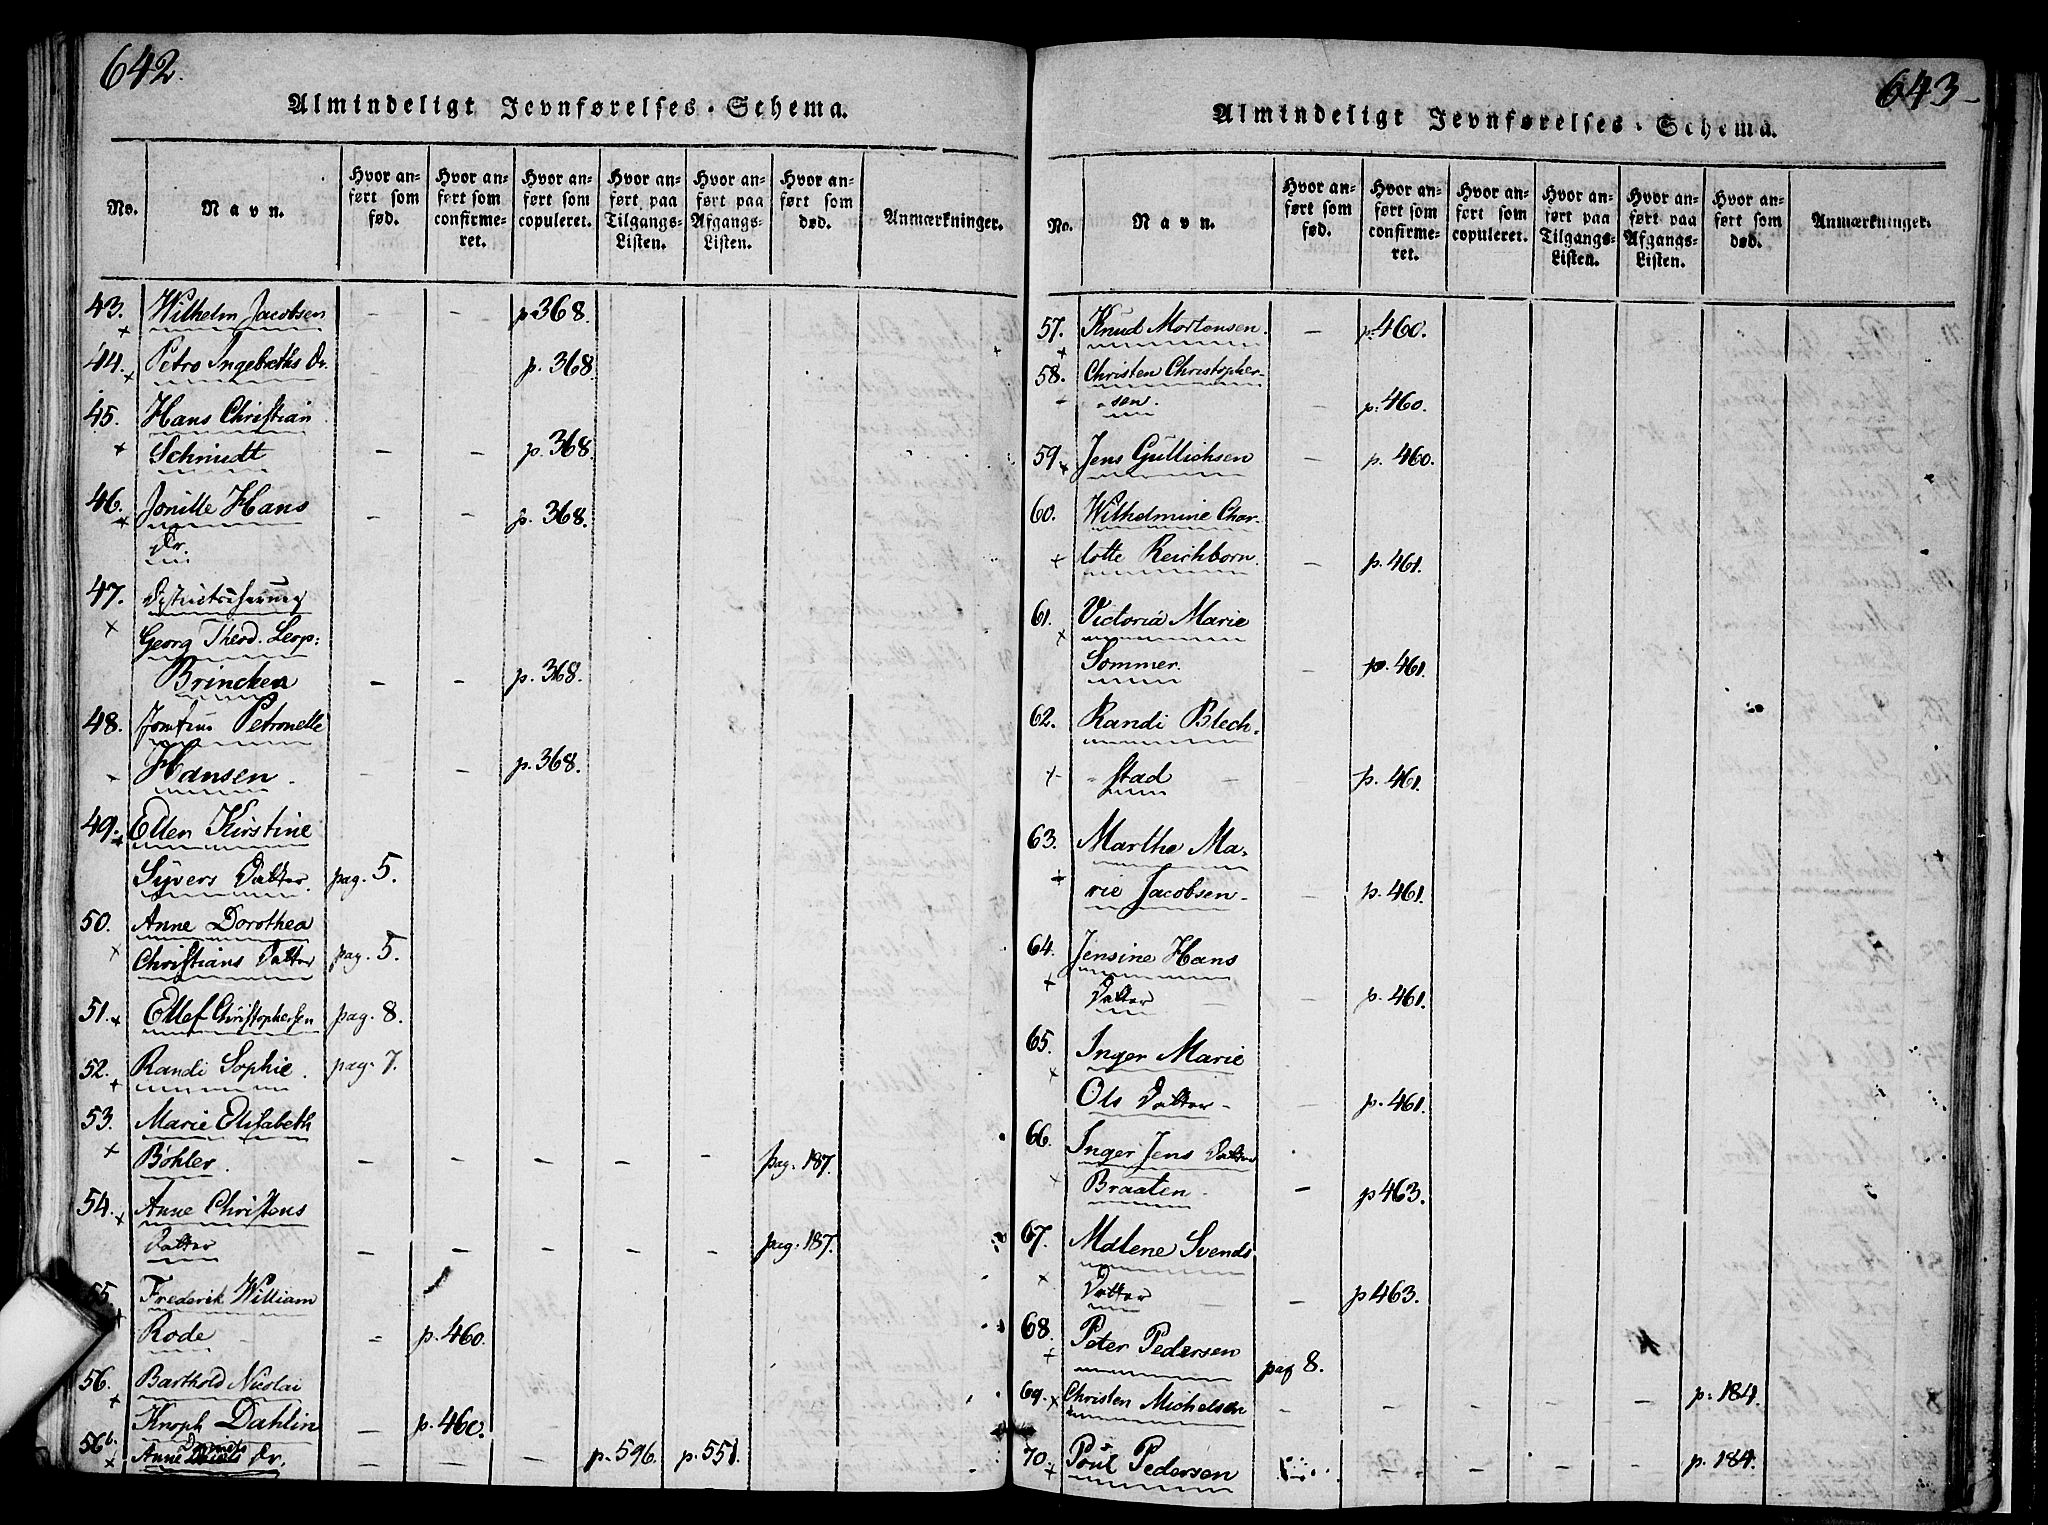 642.
Almindeligt Jevnførelses-Schema.
No.
Navn.
Hvor an-
ført som
fød.
Hvor an-
ført som
confirme-
ret.
Hvor an-
ført som
copuleret.
Hvor an-
ført paa
Tilgangs-
Listen.
Hvor an-
ført paa
Afgangs-
Listen.
Hvor an-
ført som
død.
Anmærkninger.
43. Wilhelm Jacobsen - - p. 368.
44. Petro Ingebreths Dr. p. 368.
45. Hans Christian
Schmidt - - p. 368.
46. Jonille Hans - - p. 368.
Dr.
47.
Georg Theod. Leop:
Brincken - - p. 368.
48. Petronelle
Hansen - - p. 368.
49. Ellen Kirstine
Syvers Datter pag. 5.
50. Anne Dorothea
Christians Datter pag. 5.
51. Ellef Christophersen pag. 8.
52. Randi Sophie. pag. 7.
53. Marie Elisabeth
Bøhler. - - - - - pag. 187.
54. Anne Christens
Datter - - - - - pag. 187.
55. Frederik William
Rode - p. 460.
56. Barthold Nicolai
Knoph Dahlin - p. 460.
56b. Anne Dr. - - - p. 596. p. 551.
643
Almindeligt Jevnførelses-Schema.
No.
Navn.
Hvor an-
ført som
fød.
Hvor an-
ført som
confirme-
ret.
Hvor an-
ført som
copuleret.
Hvor an-
ført paa
Tilgangs-
Listen.
Hvor an-
ført paa
Afgangs-
Listen.
Hvor an-
ført som
død.
Anmærkninger.
57. Knud Mortensen. - p. 460.
58. Christen Christopher-
sen. - p. 460.
59. Jens Gullichsen - p. 460.
60. Wilhelmine Char-
lotte Reichborn. - p. 461.
61. Victoria Marie
Sommer. - p. 461.
62. Randi Blech-
stad - p. 461.
63. Marthe Ma-
rie Jacobsen - p. 461.
64. Jensine Hans
Datter - p. 461.
65. Inger Marie
Ols Datter - p. 461.
66. Inger Jens Datter
Braaten - p 463.
67. Malene Svends
Datter - p 463.
68. Peter Pedersen pag 8.
69. Christen Michelsen - - - - - p. 184.
70. Poul Pedersen - - - - p. 184.